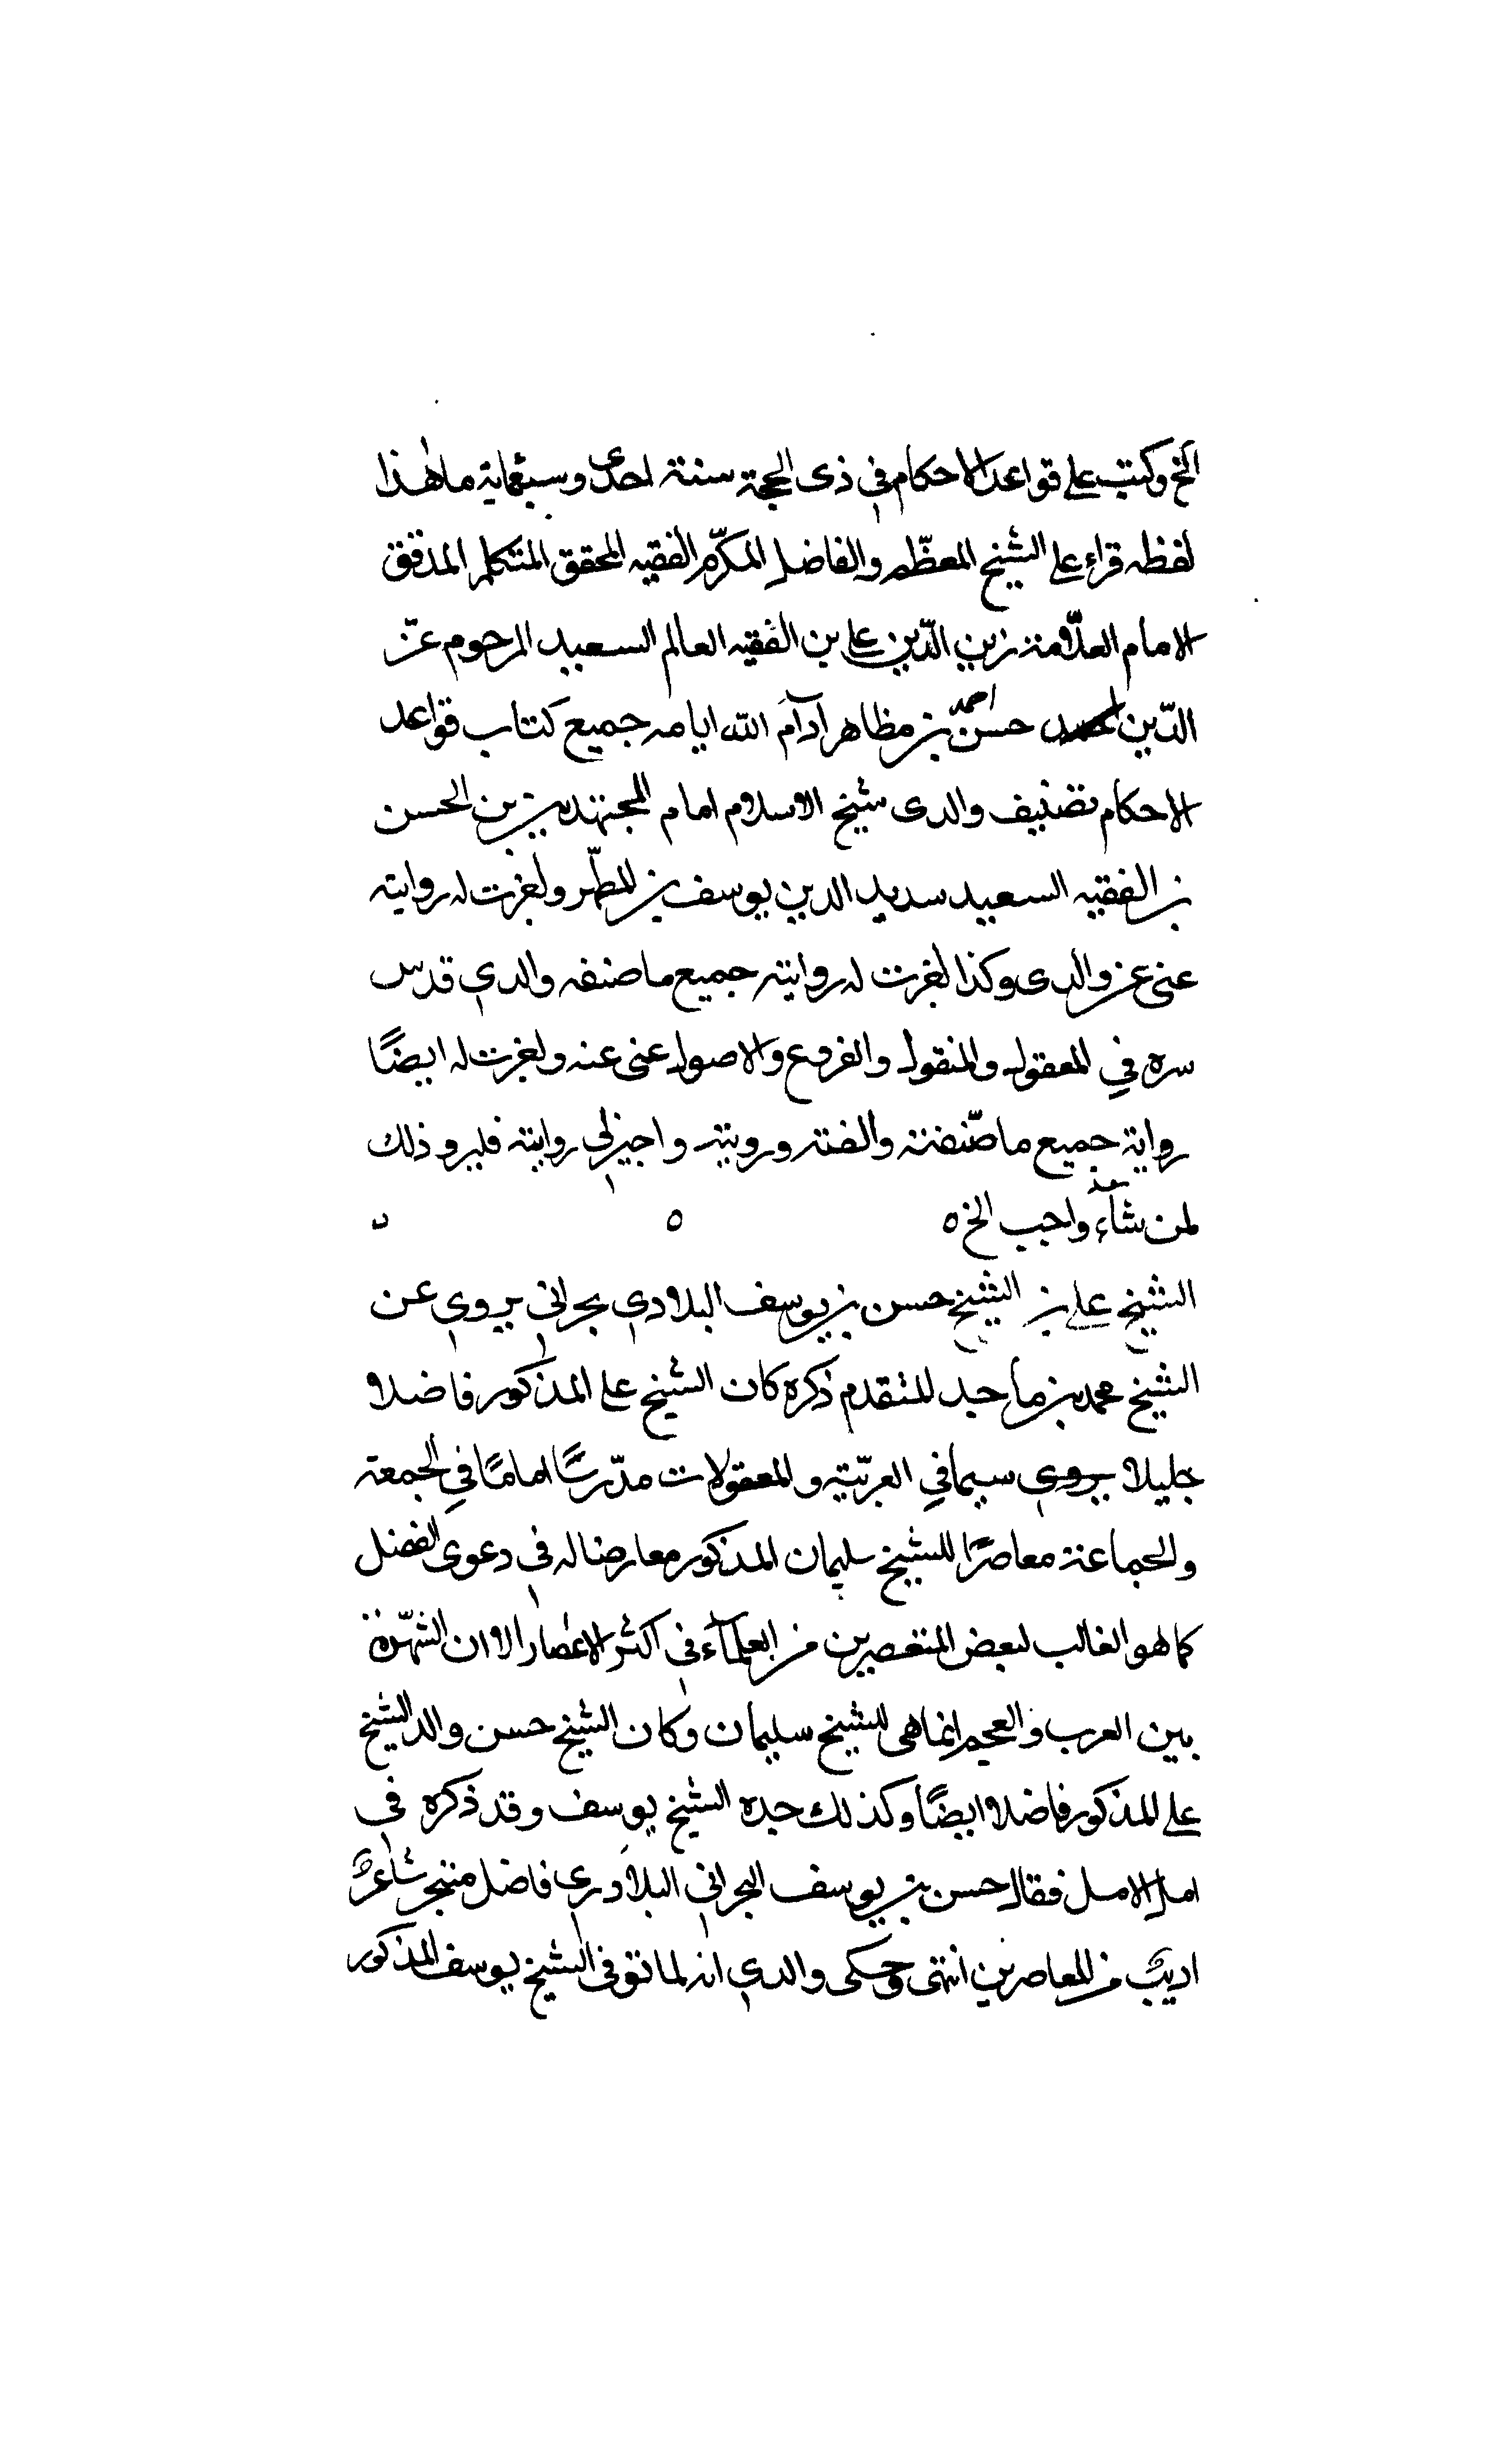 الخ وكتب على قواعد الاحكام في ذى الحجة سنة احدى وسبعماية ما هذا
لفظه قراء على الشيخ المعظّم والفاضل المكرّم الفقيه المحقق المتكلم المدقق
الامام العلّامة زين الدّين على بن الفقيه العالم السعيد المرحوم عزّ
الدّين حسن احمد بن مظاهر ادام الله ايامه جميع كتاب قواعد
الاحكام تصنيف والدى شيخ الاسلام امام المجتهدين بن الحسن
بن الفقيه السعيد سديد الدين يوسف بن المطهّر واجزت له روايته
عنى عن والدى وكذا اجزت له رواية جميع ما صنفه والدي قدس
سره في المعقول والمنقول والفروع والاصول عنى عنه واجزت له ايضًا
رواية جميع ما صنّفته والفته ورويته واجيز لي روايته فليرو ذلك
لمن شاء واحب الخ ه ه
الشيخ على بن الشيخ حسن بن يوسف البلادي بحراني يروي عن
الشيخ محمد بن ماجد المتقدم ذكره كان الشيخ على المذكور فاضلا
جليلا يروي سيما في العربّية والمعقولات مدّرسًا امامًا في الجمعة
والجماعة معاصرًا للشيخ سليمان المذكور معارضا له في دعوى الفضل
كما هو الغالب لبعض المتعصبين من العلماء في اكثر الاعصار الا ان الشهّرة
بين العرب والعجم انما هى للشيخ سليمان وكان الشيخ حسن والد الشيخ
على المذكور فاضلا ايضًا وكذلك جده الشيخ يوسف وقد ذكره في
امل الامل فقال حسن بن يوسف البحراني البلادري فاضل متبحر شاعرٌ
اديبٌ من المعاصرين انتهى وحكى والدي انه لما توفي الشيخ يوسف المذكور